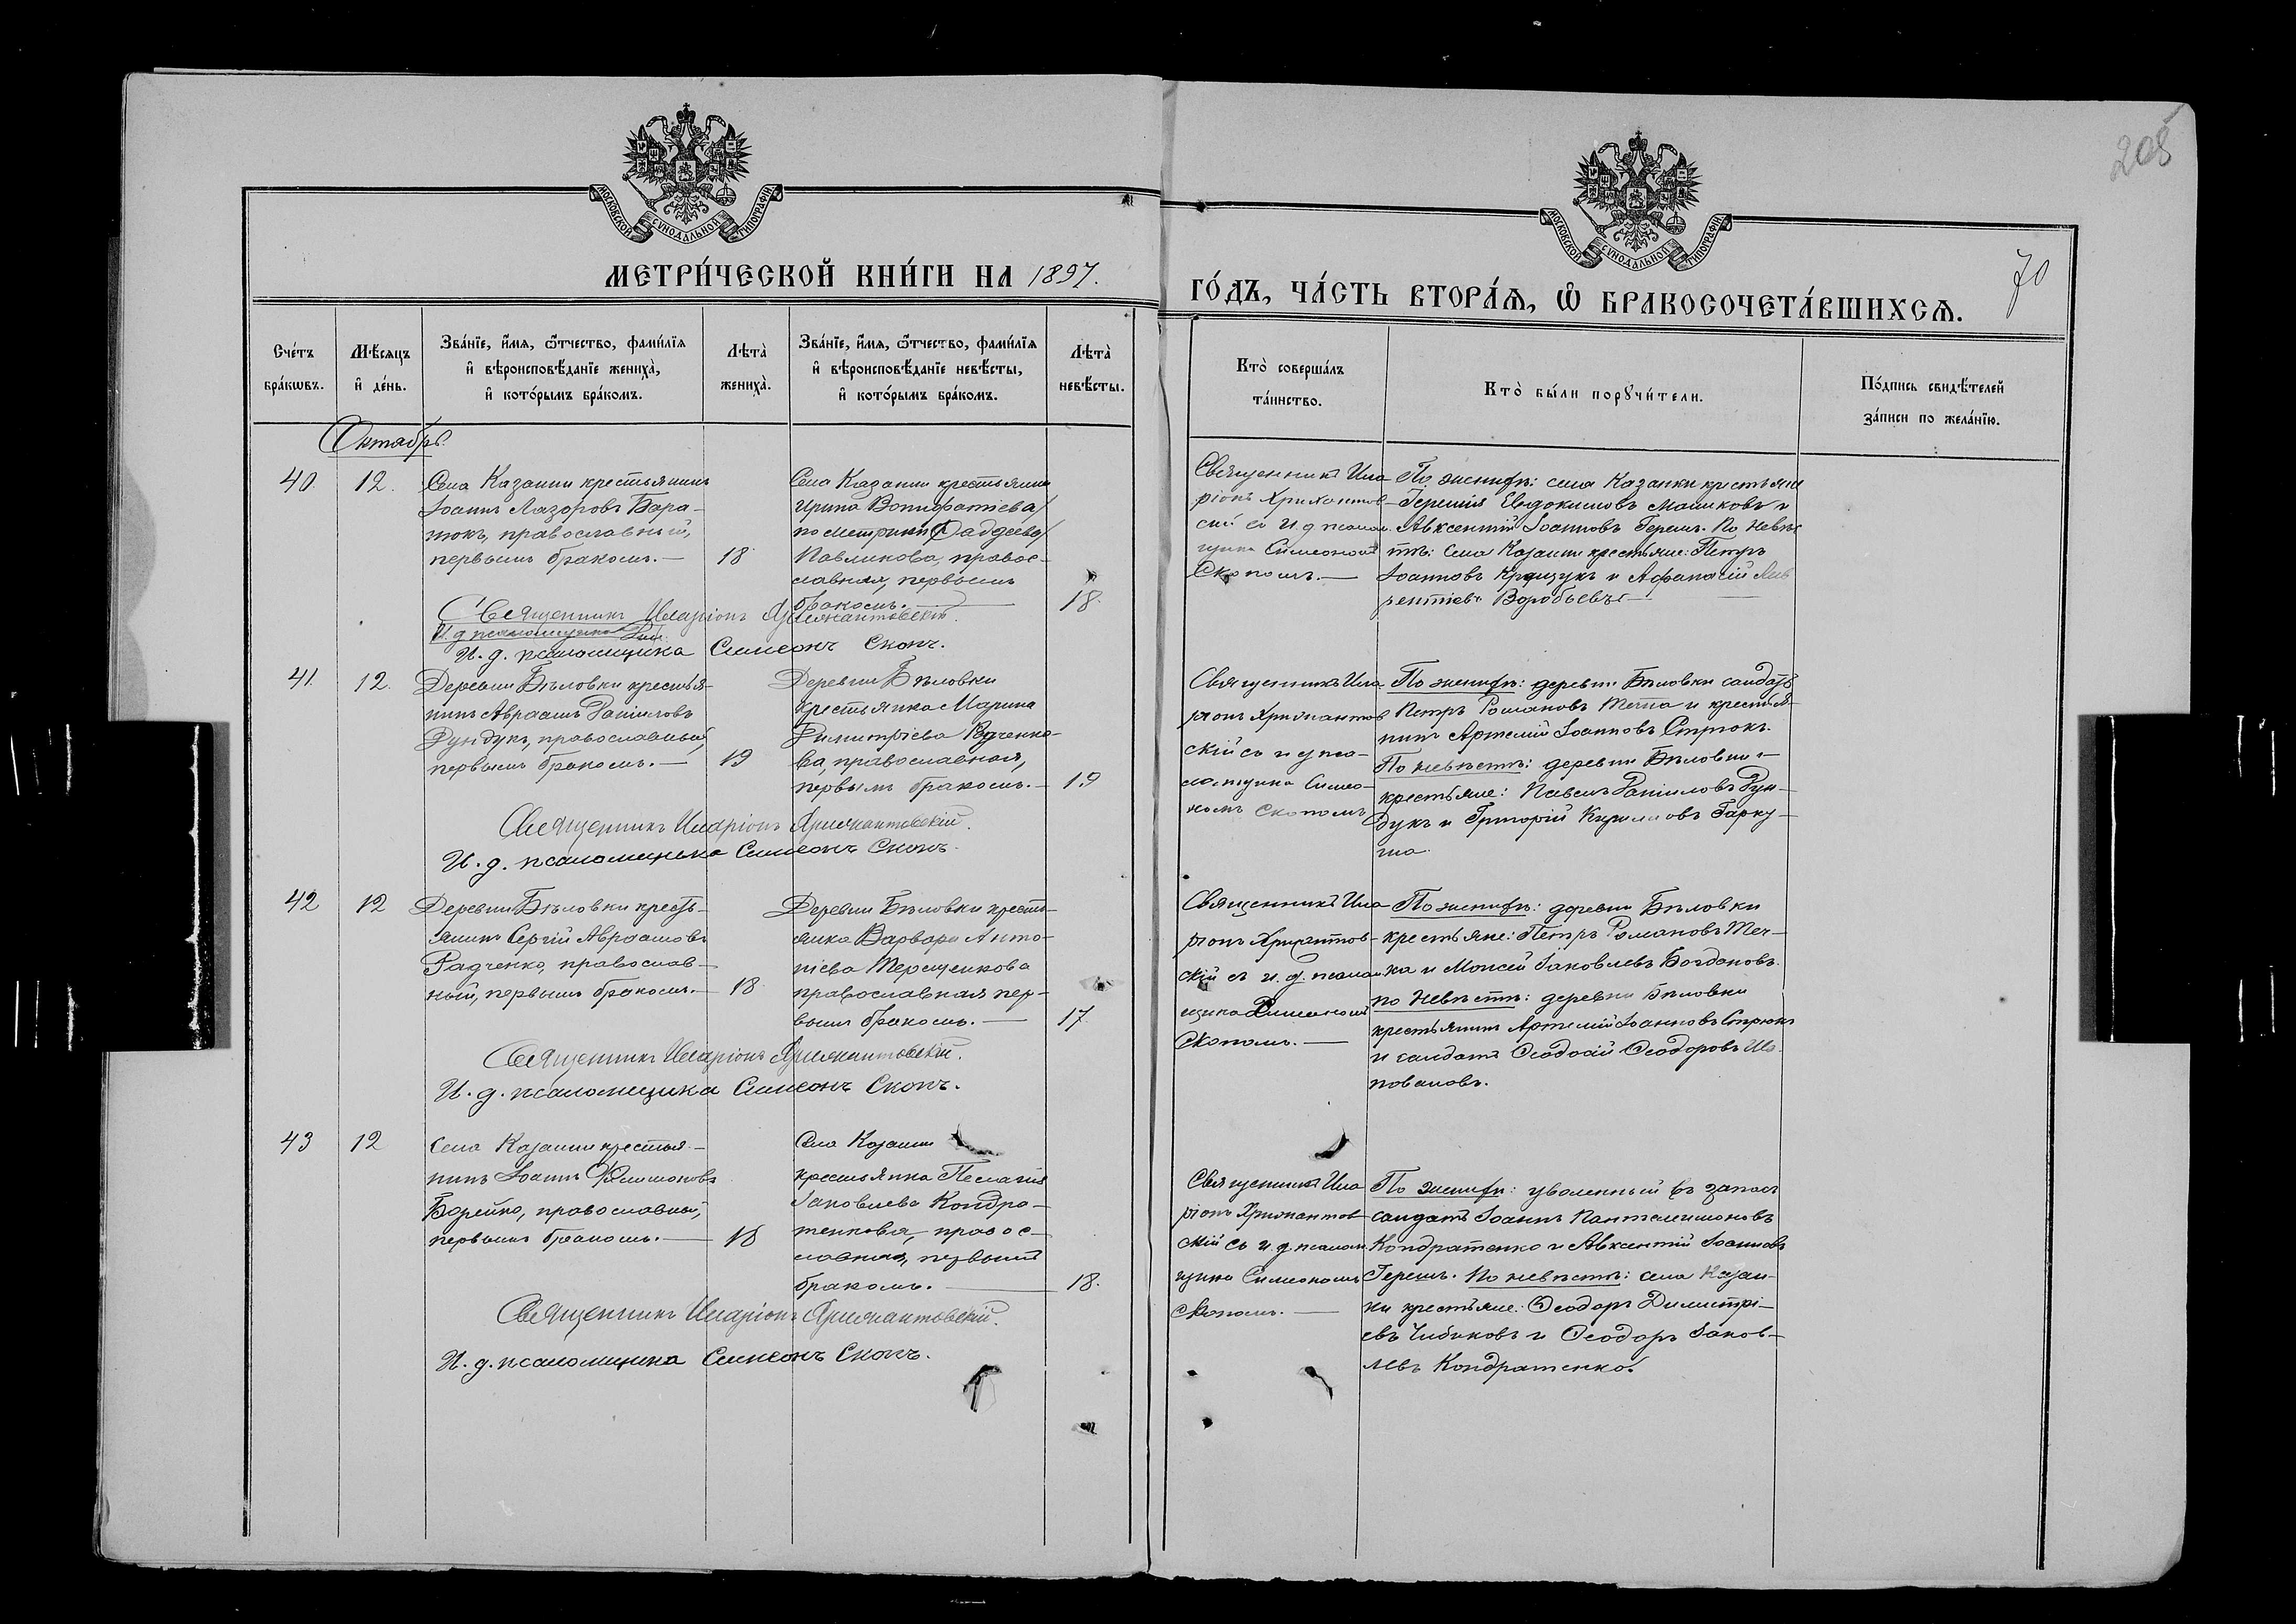 208
70
МОСКОВСКОЙ СУНОДАЛЬНОЙ ТИПОГРАФІИ
МОСКОВСКОЙ СУНОДАЛЬНОЙ ТИПОГРАФІИ
МЕТРИ́ЧЕСКОЙ КНИ́ГИ НА 1897.
ГО́ДЪ, ЧА́СТЬ ВТОРА́Ѧ, Ѡ҆ БРАКОСОЧЕТА́ВШИХСѦ.
Сче́тъ
бра́кѡвъ.
Мѣ́сяцъ
и҆ де́нь.
Зва́нїе, и҆́мя, ѻ҆́тчество, фами́лїя
и҆ вѣроисповѣ́данїе жениха̀,
и҆ кото́рымъ бра́комъ.
Лѣта̀
жениха̀.
Зва́нїе, и҆́мя, ѻ҆́тчество, фами́лїя
и҆ вѣроисповѣ́данїе невѣ́сты,
и҆ кото́рымъ бра́комъ.
Лѣта̀
невѣ́сты.
Кто̀ соверша́лъ
та́инство.
Кто̀ бы́ли порꙋчи́тели.
По́дпись свидѣ́телей
за́писи по жела́нїю.
Октябрь.
40.
12.
Села Казанки крестьянинъ
Іоаннъ Лазоровъ Бара-
нокъ, православный,
первымъ бракомъ. —
18
Села Казанки крестьянка
Ирина Вонифатіева/
по метрики Фаддеева/
Павликова, правос-
лавная, первымъ
бракомъ. —
18.
Священникъ Ила-
ріонъ Хрисантов-
скій съ и. д. псалом-
щика Симеономъ
Скопомъ. —
По женихѣ: села Казанки крестьяне
Геремія Евдокимовъ Машковъ и
Авксентій Іоанновъ Герешъ. По невѣс
тѣ: села Казанки крестьяне: Петръ
Іоанновъ и Афанасій Лав
рентіевъ Воробьевъ —
Священникъ Иларіонъ Хрисантовскій.
И. д. псаломщика
И. д. псаломщика Симеонъ Скопъ.
41.
12.
Деревни Бѣловки крестья-
нинъ Авраамъ Даніиловъ
Рундукъ, православный,
первымъ бракомъ. —
19
Деревни Бѣловки
крестьянка Марина
Димитріева Радченко-
ва, православная,
первымъ бракомъ. —
19
Священникъ Ила-
ріонъ Хрисантов
скій съ и д пса-
ломщика Симео-
номъ Скопомъ
По женихѣ: деревни Бѣловки солдатъ
Петръ Романовъ и крестья-
нинъ Артемій Іоанновъ Стрюкъ.
По невѣстѣ: деревни Бѣловки —
крестьяне: Павелъ Даніиловъ Рун-
дукъ и Григорій Кириловъ Гарку-
ша.
Священникъ Иларіонъ Хрисантовскій.
И. д. псаломщика Симеонъ Скопъ.
42
12
Деревни Бѣловки кресть-
янинъ Сергій Авраамовъ
Радченко, православ-
ный, первымъ бракомъ. —
18
Деревни Бѣловки кресть-
янка Варвара Анто-
ніева Терещенкова
православная пер-
вымъ бракомъ. —
17.
Священникъ Ила-
ріонъ Хрисантов-
скій съ и. д. псалом
щика Симеономъ
Скопомъ. —
По женихѣ: деревни Бѣловки
крестьяне: Петръ Романовъ Теч-
ка и Моисей Іаковлевъ Богдановъ.
по невѣстѣ: деревни Бѣловки
крестьянинъ Артемій Іоанновъ Стрюкъ
и солдатъ Ѳеодосій Ѳеодоровъ Ша-
поваловъ.
Священникъ Иларіонъ Хрисантовскій.
И. д. псаломщика Симеонъ Скопъ.
43
12
Села Казанки крестья-
нинъ Іоаннъ Филимоновъ
Борейко, православный,
первымъ бракомъ. —
18
Села Казанки
крестьянка Пелагія
Іаковлева Кондра-
тенкова, правос-
лавная, первымъ
бракомъ. —
18.
Священникъ Ила
ріонъ Хрисантов
скій съ и. д. псалом
щика Симеономъ
Скопомъ. —
По женихѣ: уволенный въ запасъ
солдатъ Іоаннъ Пантелеимоновъ
Кондратенко и Авксентій Іоанновъ
Герешъ. По невѣстѣ: села Казан-
ки крестьяне: Ѳеодоръ Димитрі-
евъ Чибиковъ и Ѳеодоръ Іаков-
левъ Кондратенко.
Священникъ Иларіонъ Хрисантовскій.
И. д. псаломщика Симеонъ Скопъ.